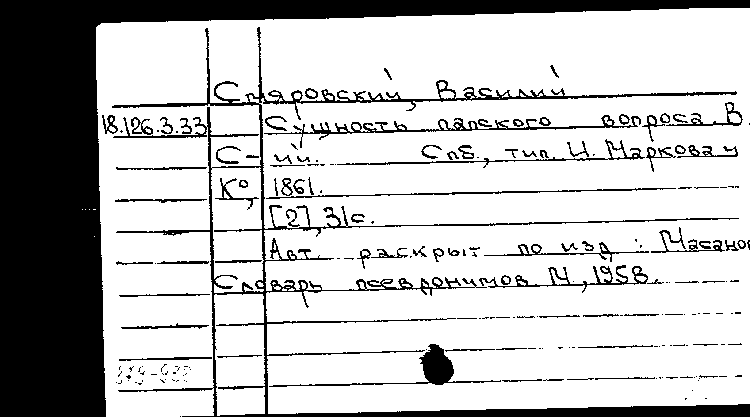 Смяровский, Василий
18.126.3.33 Сущность папского вопроса. В.
С-ий. Спб., тип. И. Маркова и
К°, 1861.
[2], 31с.
Авт. раскрыт по изд: Масанов
Словарь псевдонимов М, 1958.